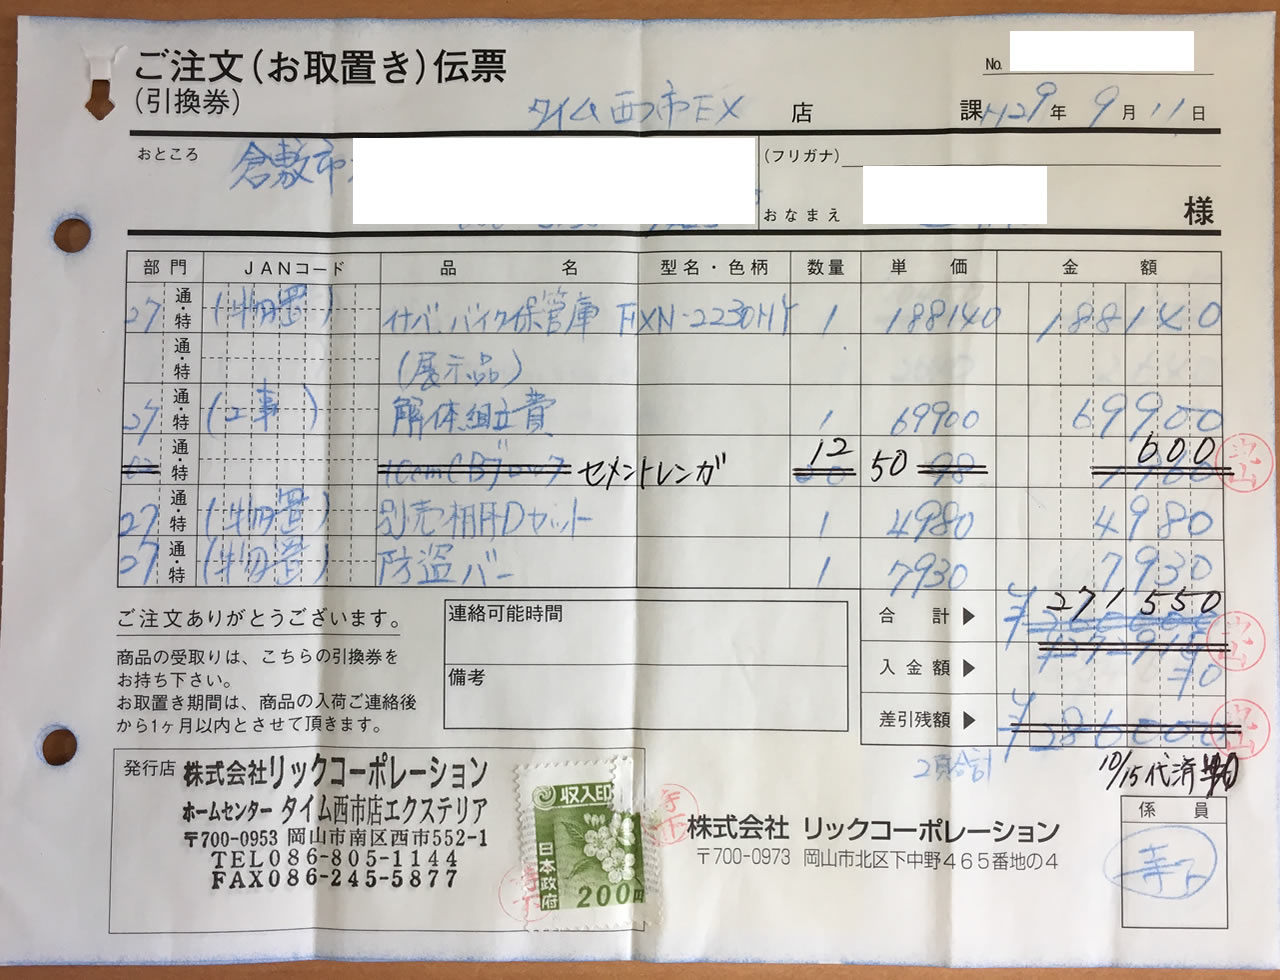 ご注文(お取置き)伝票
(引換券)
No.
タイム西市EX 店 課 H29年 9月 11日
おところ 倉敷市
(フリガナ)
おなまえ 様
部門 JANコード 品名 型名・色柄 数量 単価 金額
27 通・特 (物置) イナバ バイク保管庫 FXN-2230HY 1 188140 188140
通・特 (展示品)
27 通・特 (工事) 解体組立費 1 69900 69900
通・特 10cmCBブロック セメントレンガ 12 50 98 600
27 通・特 (物置) 別売棚Dセット 1 4980 4980
27 通・特 (物置) 防盗バー 1 7930 7930
ご注文ありがとうございます。
商品の受取りは、こちらの引換券を
お持ち下さい。
お取置き期間は、商品の入荷ご連絡後
から1ヶ月以内とさせて頂きます。
連絡可能時間
備考
合計▶ ¥271550
入金額▶ ¥0
差引残額▶ ¥286000
2頁合計
10/15代済
発行店 株式会社リックコーポレーション
ホームセンター タイム西市店エクステリア
〒700-0953 岡山市南区西市552-1
TEL086-805-1144
FAX086-245-5877
収入印
日本政府
200円
株式会社 リックコーポレーション
〒700-0973 岡山市北区下中野465番地の4
係員
寺下